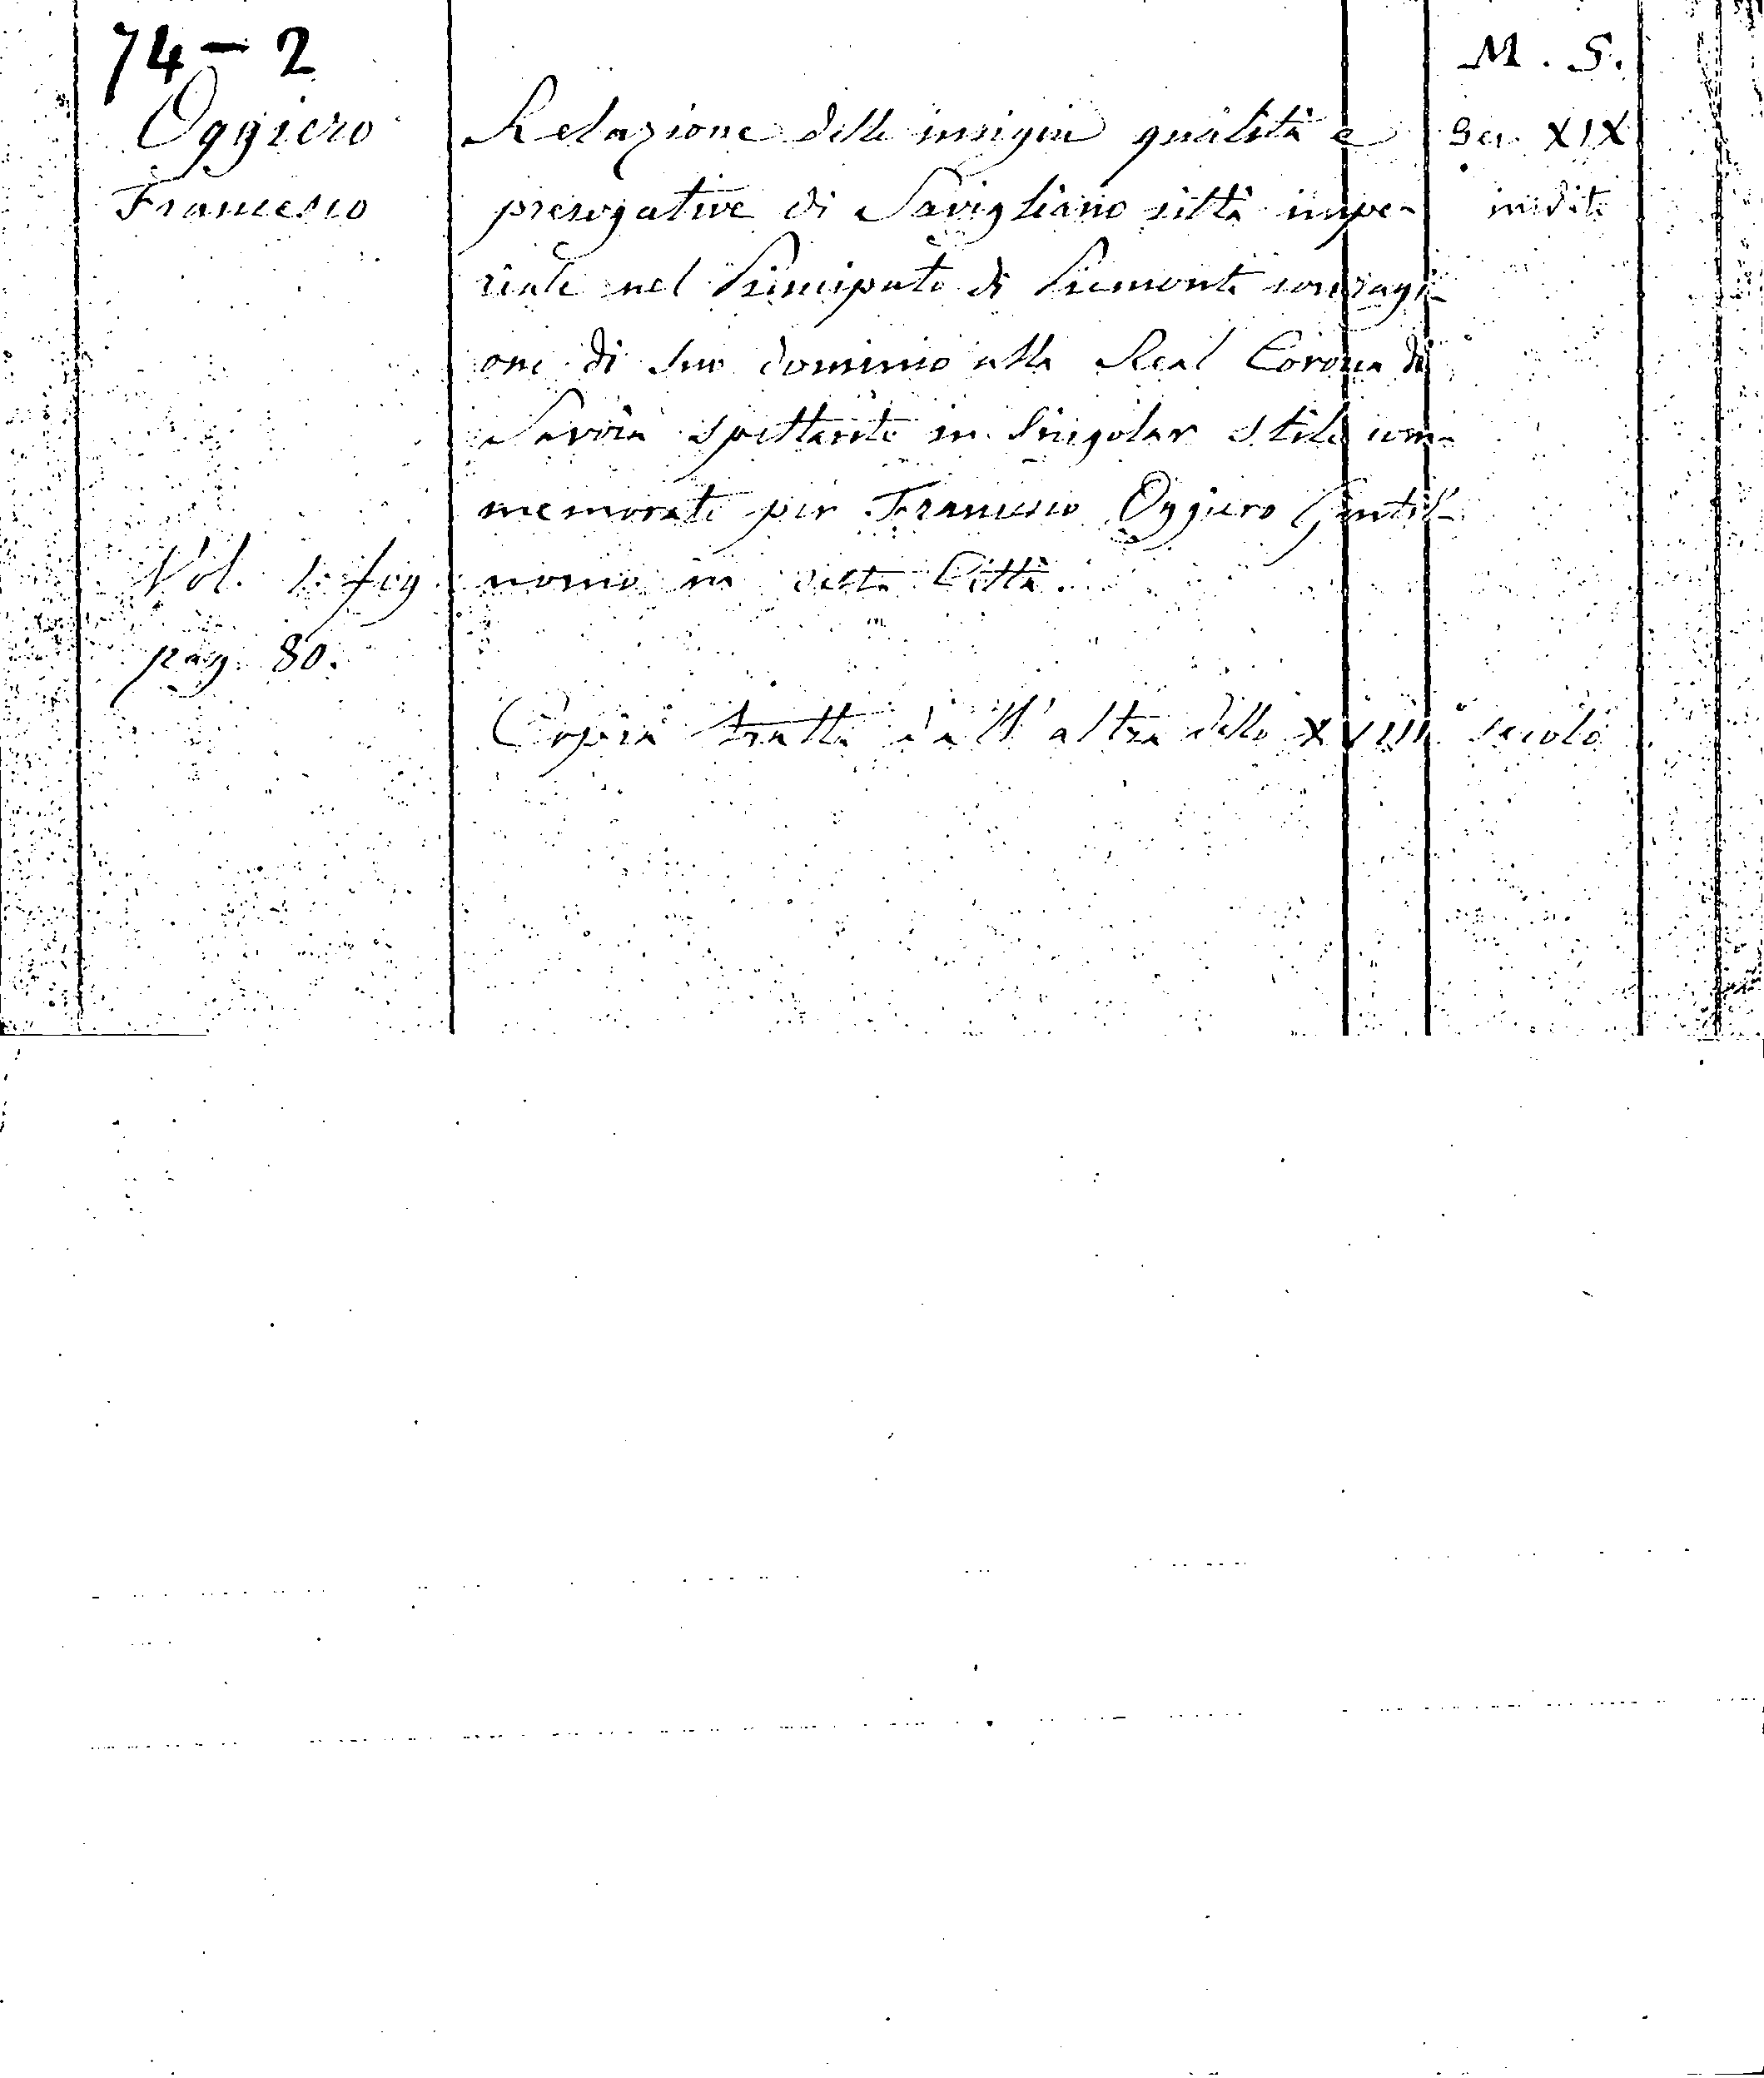 74 - 2
Oggiero
Francesco
Vol. 1. fog
pag. 80.
Relazione delle insigni qualità e
prerogative di Savigliano città impe-
riale nel Principato di Piemonte con ragi-
one di suo dominio alla Real Corona di
Savoia spettante in singolar stile com-
memorate per Francesco Oggiero Gentil'
uomo in detta Città.
Copia tratta dall' altra dello XVIII secolo
M. S.
Sec. XIX
inedito